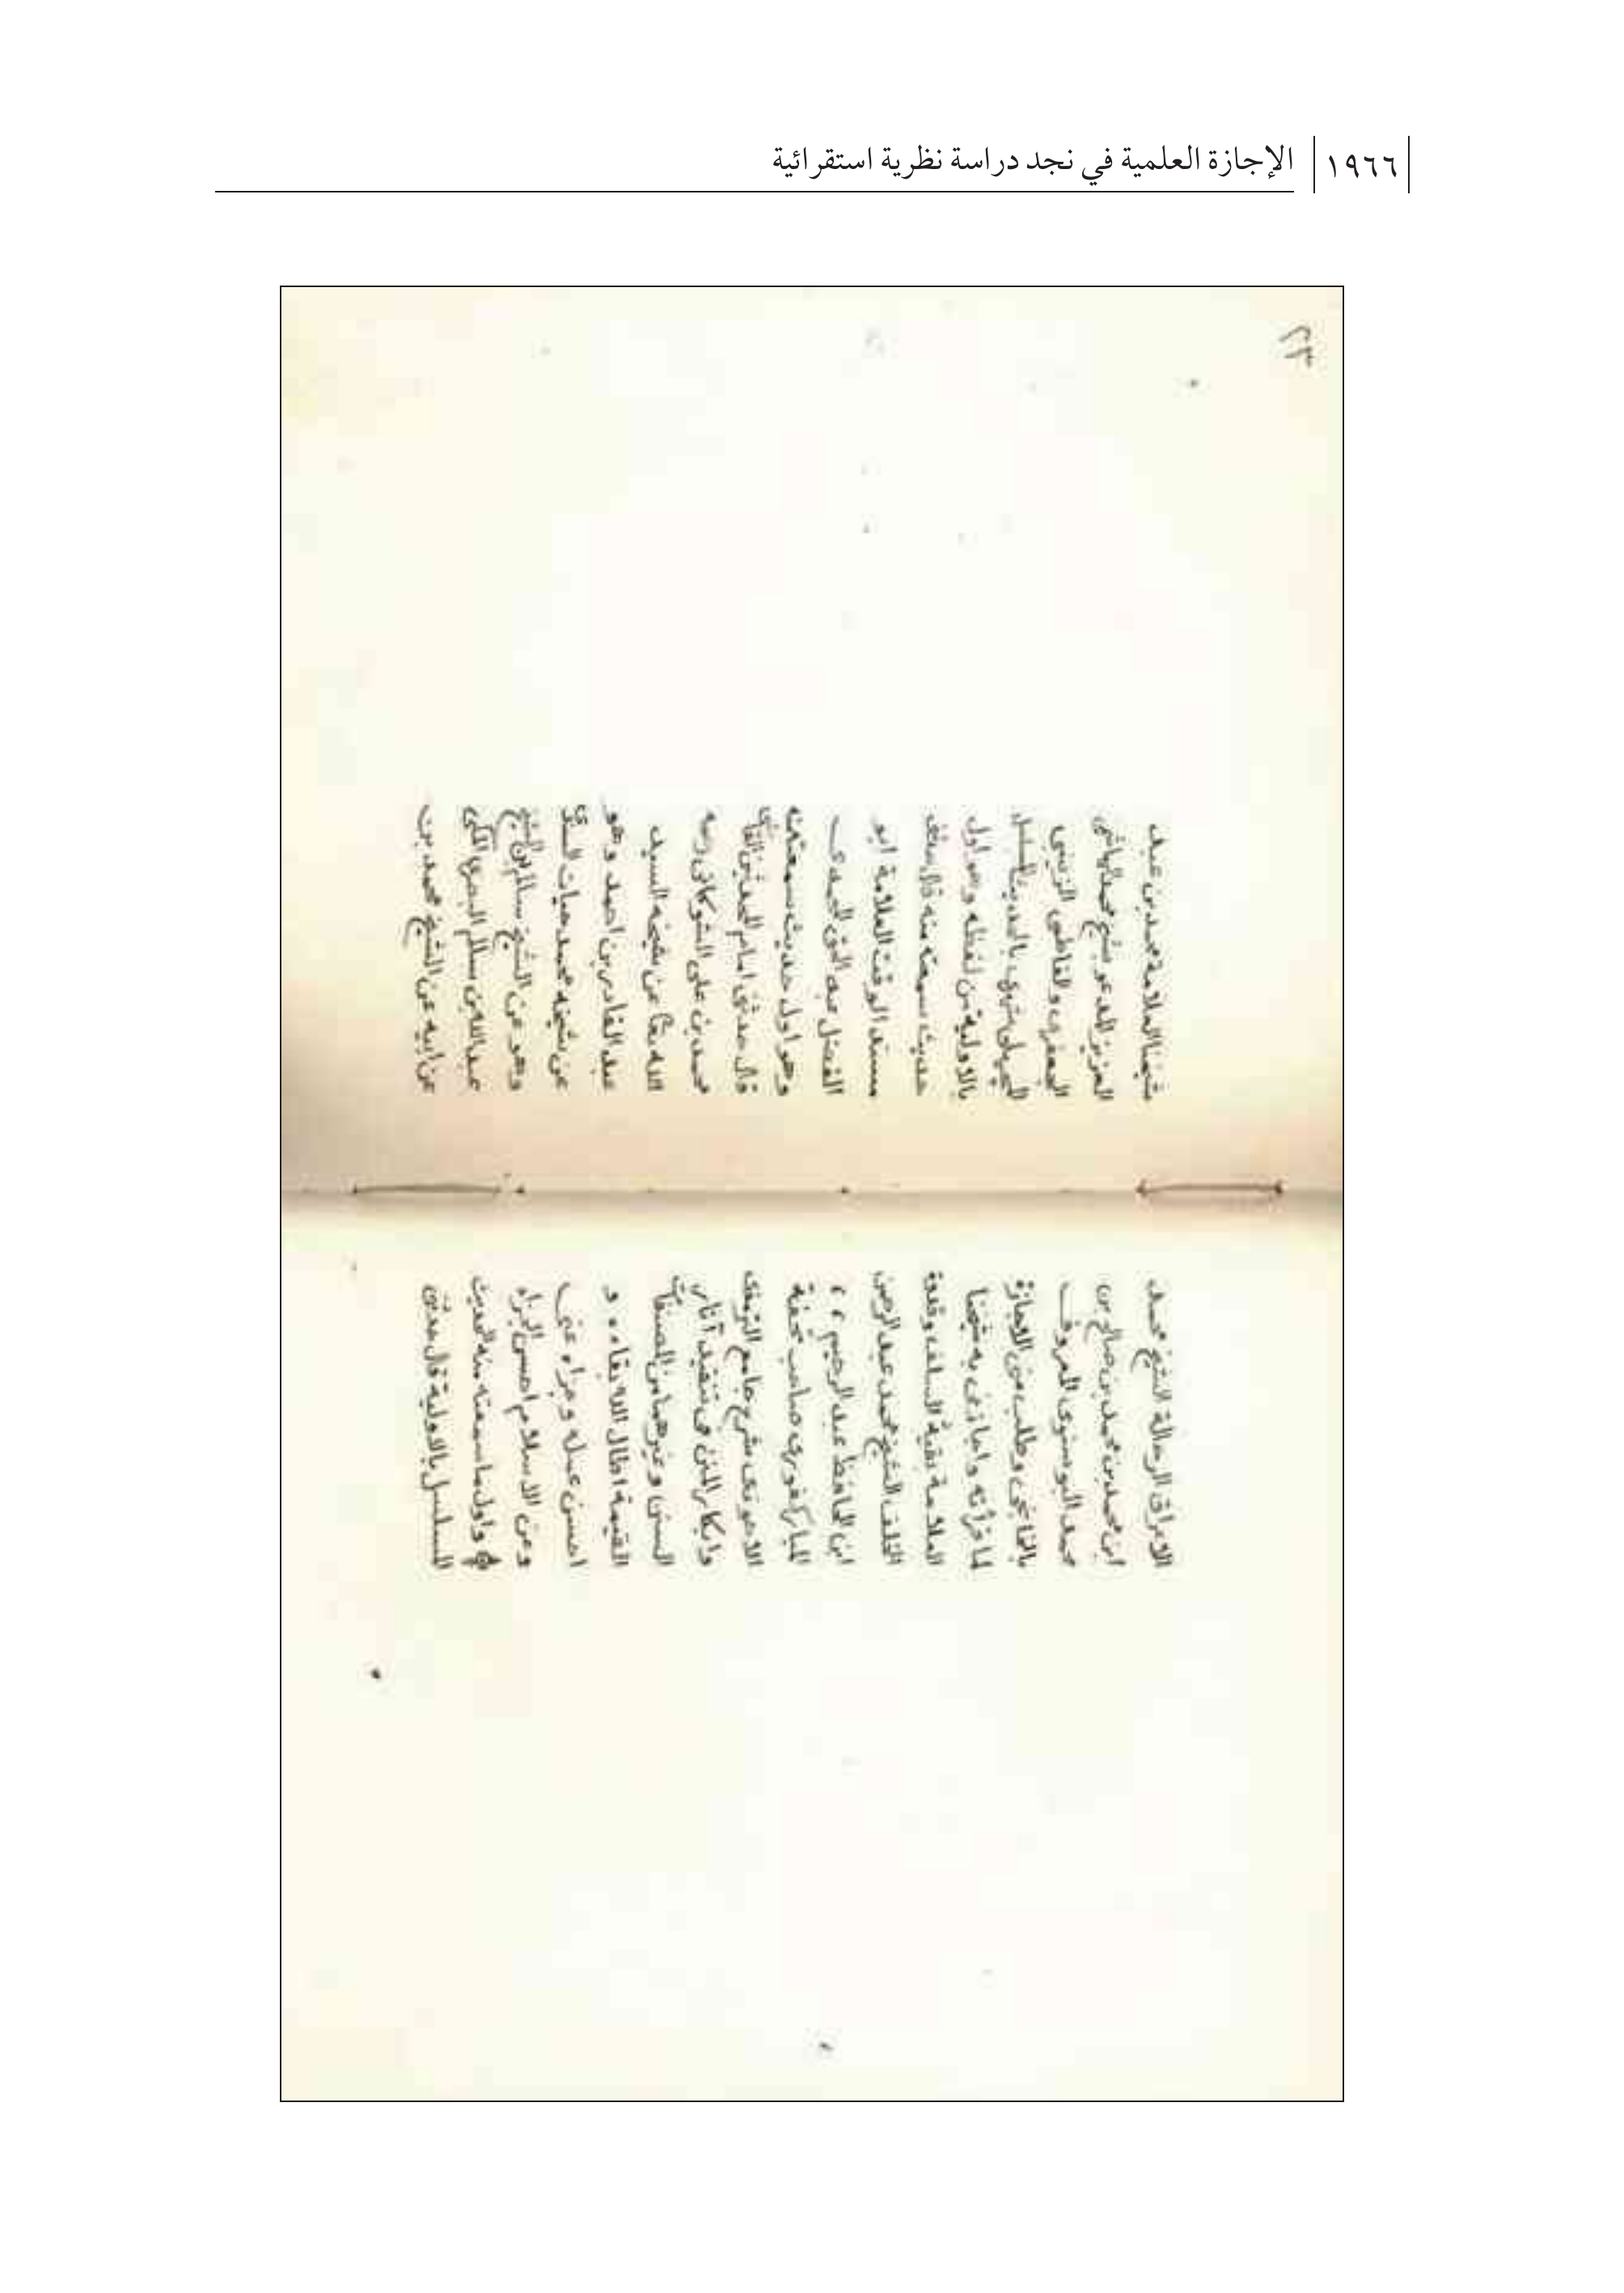 ١٩٦٦ الإجازة العلمية في نجد دراسة نظرية استقرائية
٢٣
الاعراق الرحالة الشيخ محمد
ابن محمد بن محمد بن صالح بن
محمد البوسنوي المعروف
بالخانجي وطلب مني الاجازة
لما قرأته واجازني به شيخنا
العلامة بقية السلف وقدوة
الخلف الشيخ محمد عبد الرحمن
ابن الحافظ عبد الرحيم
المباركفوري صاحب تحفة
الاحوذي شرح جامع الترمذي
وابكار المنن في تنقيد آثار
السنن وغيرهما من المصنفات
القيمة اطال الله بقاءه و
احسن عمله وجزاه عني
وعن الاسلام احسن الجزاء
واول ما سمعته منه الحديث
المسلسل بالاولية قال حدثني
شيخنا العلامة محمد بن عبد
العزيز المدعو بشيخ محمد الهاشمي
الجعفري والقاضي الزينبي
شهري بالحديث المسلسل
بالاولية من لفظه وهو اول
حديث سمعته منه قال حدثني
مسند الوقت العلامة ابو
الفضل عبد الحق المحمدي
وهو اول حديث سمعته منه
قال حدثني امام المحدثين القاضي
محمد بن علي الشوكاني رحمه
الله تعا عن شيخه السيد
عبد القادر بن احمد وهو
عن شيخه محمد حيات السندي
وهو عن الشيخ سالم بن الشيخ
عبد الله بن سالم البصري المكي
عن ابيه عن الشيخ محمد بن